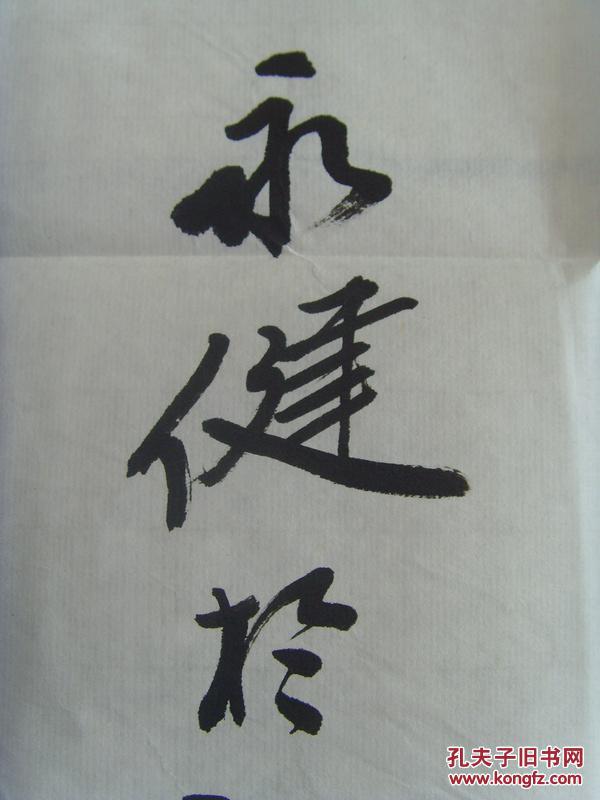 永健於
孔夫子旧书网
www.kongfz.com